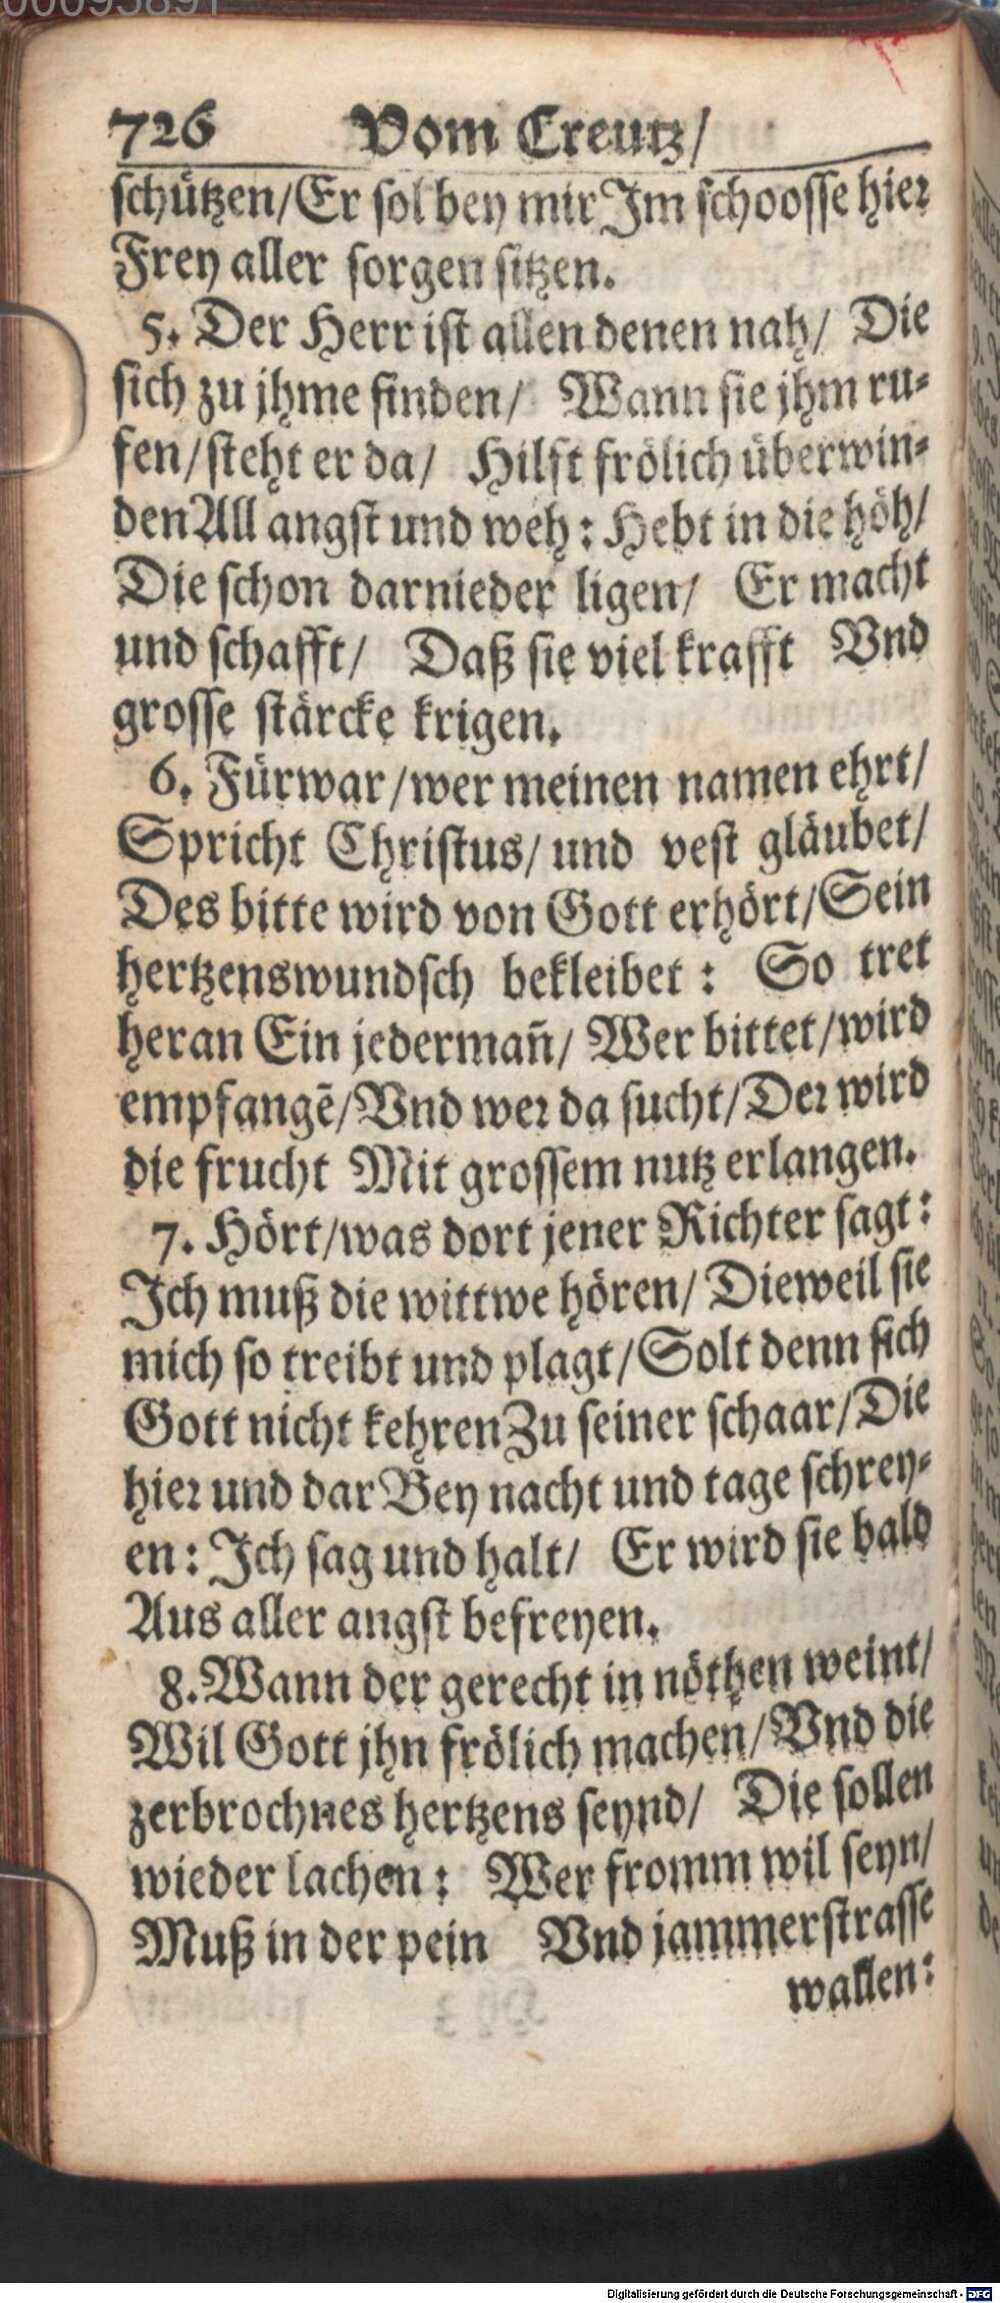 00095891
726 Vom Creutz/
schützen/Er sol bey mir Im schoosse hier
Frey aller sorgen sitzen.
5. Der Herr ist allen denen nah/ Die
sich zu jhme finden/ Wann sie jhm ru-
fen/steht er da/ Hilft frölich überwin-
den All angst und weh: Hebt in die höh/
Die schon darnieder ligen/ Er macht
und schafft/ Daß sie viel krafft Vnd
grosse stärcke krigen.
6. Fürwar/wer meinen namen ehrt/
Spricht Christus/ und vest gläubet/
Des bitte wird von Gott erhört/Sein
hertzenswundsch bekleibet: So tret
heran Ein jedermañ/ Wer bittet/wird
empfangē/Vnd wer da sucht/Der wird
die frucht Mit grossem nutz erlangen.
7. Hört/was dort jener Richter sagt:
Ich muß die wittwe hören/ Dieweil sie
mich so treibt und plagt/Solt denn sich
Gott nicht kehren Zu seiner schaar/Die
hier und dar Bey nacht und tage schrey-
en: Ich sag und halt/ Er wird sie bald
Aus aller angst befreyen.
8. Wann der gerecht in nöthen weint/
Wil Gott jhn frölich machen/Vnd die
zerbrochnes hertzens seynd/ Die sollen
wieder lachen: Wer fromm wil seyn/
Muß in der pein Vnd jammerstrasse
wallen:
Digitalisierung gefördert durch die Deutsche Forschungsgemeinschaft - DFG